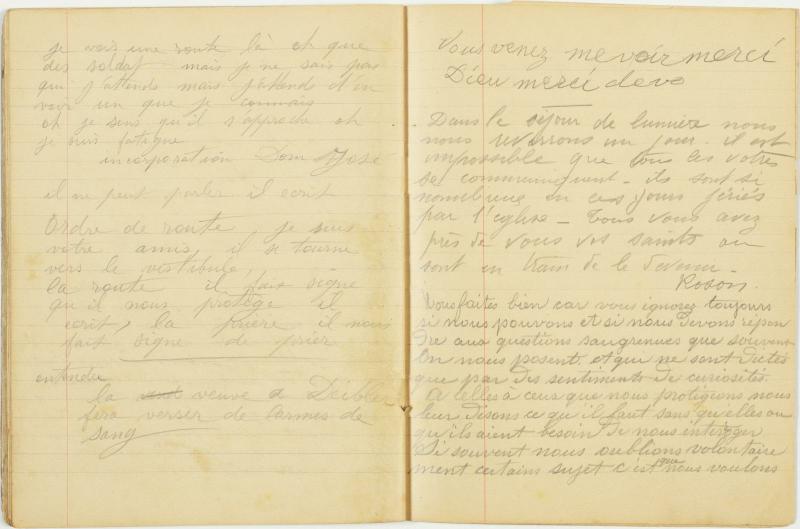 je vois une route là oh que
des soldat mais je ne sais pas
qui j'attends mais j'attends d'en
voir un que je connais
oh je sens qu'il s'approche oh
je suis fatigue
incorporation Dom José
il ne peut parler il ecrit
Ordre de route, je suis
votre amis, il se tourne
vers le vestibule,
la route il fait signe
qu'il nous protège il
ecrit, la prière il nous
fait signe de prier
entendu
la veuve a Deibler
fera verser de larmes de
sang
Vous venez me voir merci
Dieu merci devo
Dans le séjour de lumière nous
nous reverrons un jour. il est
impossible que tous les votres
se communiquent. ils sont si
nombreux en ces jours fériés
par l'eglise _ Tous vous avez
près de vous vos saints ou
sont en train de le devenir.
Vous faites bien car vous ignorez toujours
si nous pouvons et si nous devons répon
dre aux questions saugrenues que souvent
On nous posent et qui ne sont dictés
que par des sentiments de curiosités.
A celles à ceux que nous protigions nous
leur disons ce qu'il faut sans qu'elles ou
qu'ils aient besoin de nous interroger
Si souvent nous oublions volontaire
ment certains sujet c'est que nous voulons